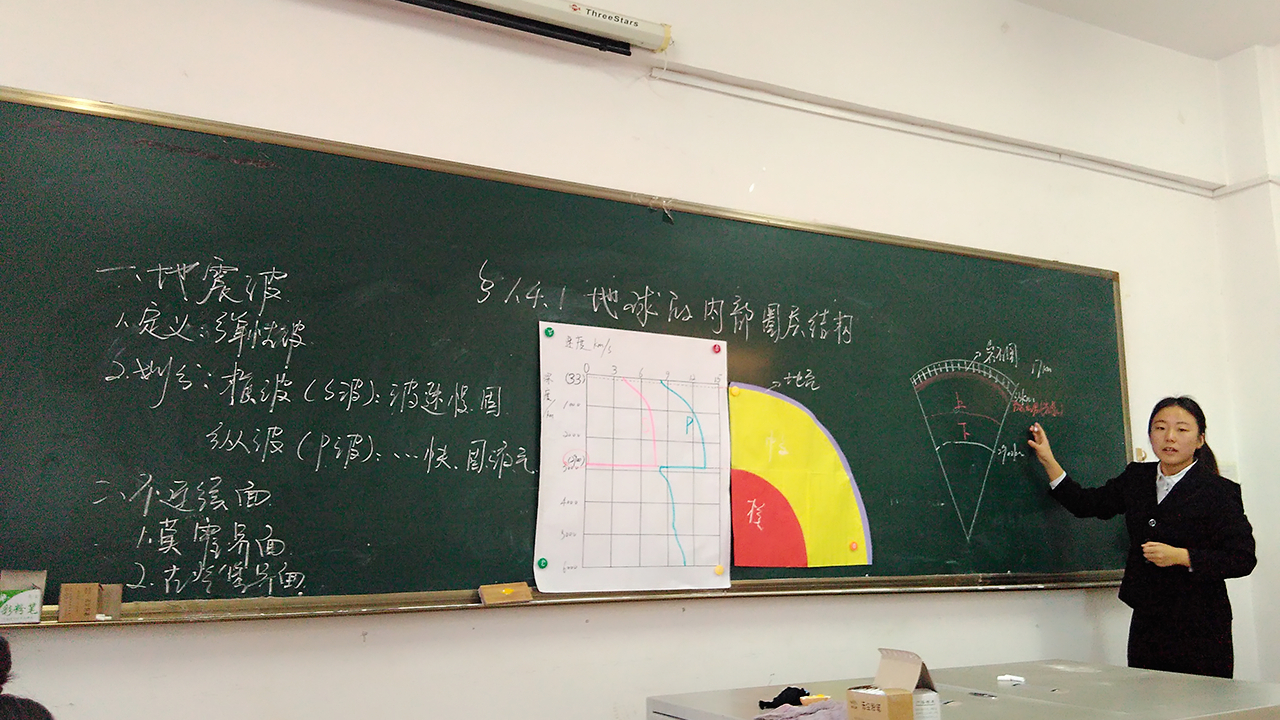 ThreeStars
§1.4.1 地球的内部圈层结构
一、地震波
1.定义：弹性波
2.划分：横波（S波）：波速慢.固
纵波（P波）：…快.固液气
二、不连续面
1.莫霍界面
2.古登堡界面
速度 km/s
0 3 6 9 12 15
深度/km
(33)
1000
2000
3000
4000
5000
6000
P
地壳
中
核
岩石圈
17km
上
下
2900km
彩粉笔
无尘粉笔